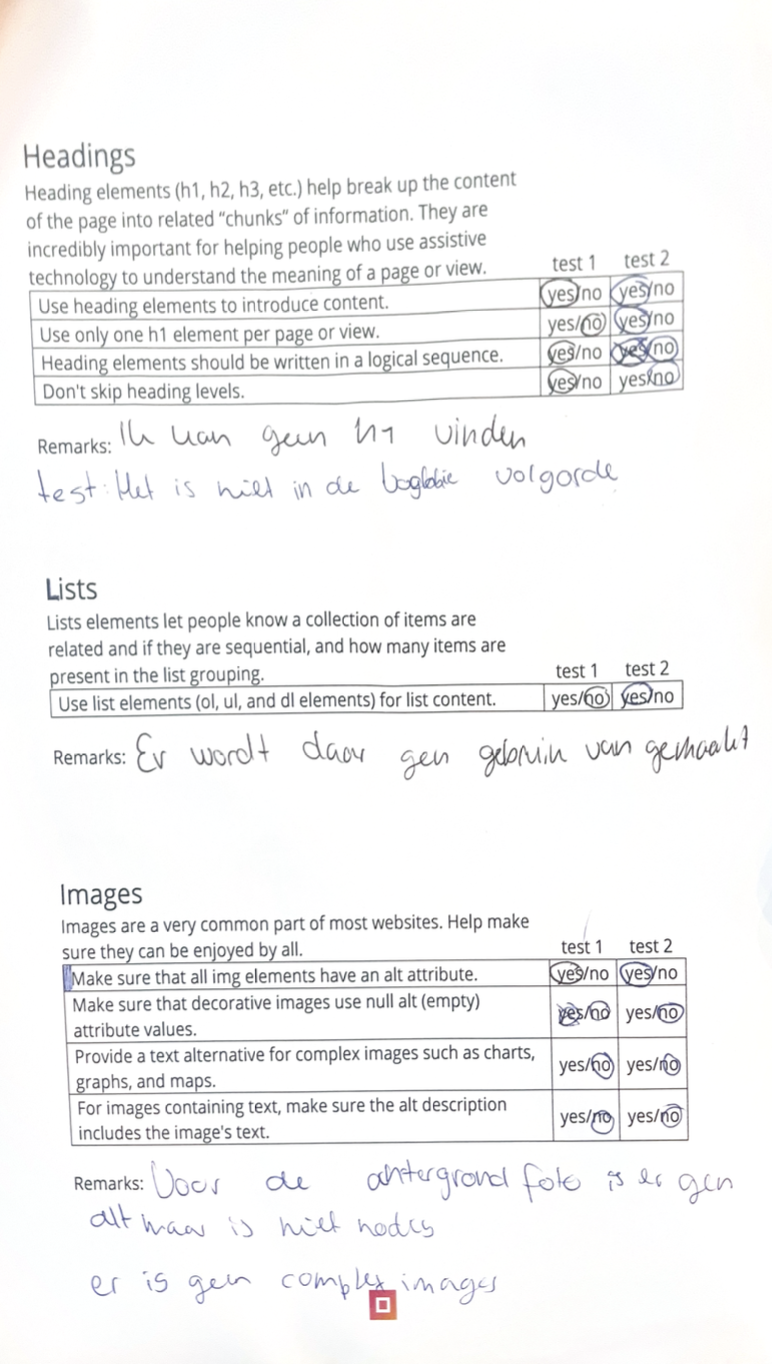 Headings
Heading elements (h1, h2, h3, etc.) help break up the content
of the page into related “chunks” of information. They are
incredibly important for helping people who use assistive
technology to understand the meaning of a page or view. test 1 test 2
Use heading elements to introduce content. yes/no yes/no
Use only one h1 element per page or view. yes/no yes/no
Heading elements should be written in a logical sequence. yes/no yes/no
Don't skip heading levels. yes/no yes/no
Remarks: Ik kan geen h1 vinden
test: Het is niet in de volgorde
Lists
Lists elements let people know a collection of items are
related and if they are sequential, and how many items are
present in the list grouping. test 1 test 2
Use list elements (ol, ul, and dl elements) for list content. yes/no yes/no
Remarks: Er wordt daar gen gebruik van gemaakt
Images
Images are a very common part of most websites. Help make
sure they can be enjoyed by all. test 1 test 2
Make sure that all img elements have an alt attribute. yes/no yes/no
Make sure that decorative images use null alt (empty)
attribute values. yes/no yes/no
Provide a text alternative for complex images such as charts,
graphs, and maps. yes/no yes/no
For images containing text, make sure the alt description
includes the image's text. yes/no yes/no
Remarks: Voor de achtergrond foto is er gen
alt maar is niet nodig
er is gen complex images